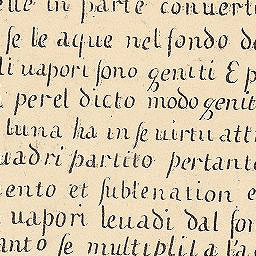 elle in parte conuerti
se le aque nel fondo de
li uapori sono geniti E p
perel dicto modo genit
luna ha in se uirtu attr
uadri partito pertanto
iento et sublenation e
uapori leuadi dal fon
anto se multiplila la